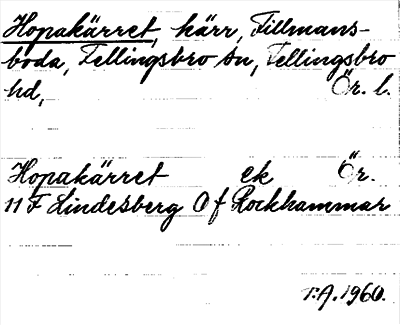 Hopakärret, kärr, Fillmans-
boda, Fellingsbro sn, Fellingsbro
hd, Ör. l.
Hopakärret ek Ör.
11 F Lindesberg O f Rockhammar
T.A. 1960.